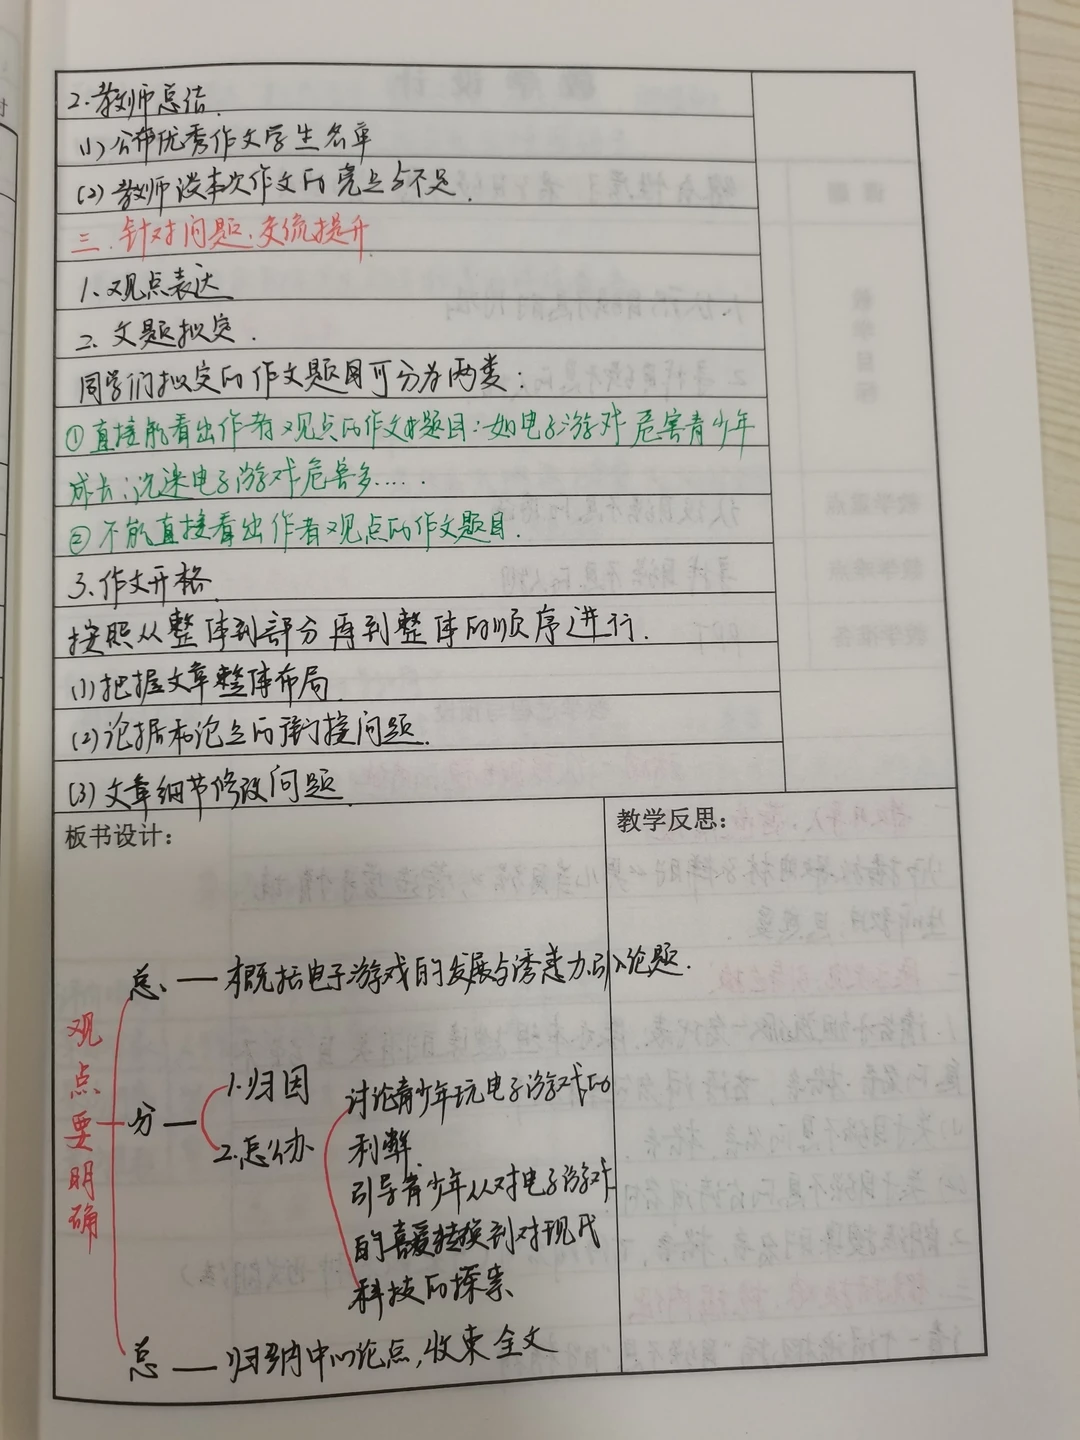 2.教师总结.
(1)公布优秀作文学生名单
(2)教师谈本次作文的亮点与不足.
三.针对问题.交流提升
1.观点表达
2.文题拟定.
同学们拟定的作文题目可分为两类:
①直接能看出作者观点的作文题目:如电子游戏危害青少年
成长;沉迷电子游戏危害多.....
②不能直接看出作者观点的作文题目.
3.作文升格.
按照从整体到部分再到整体的顺序进行.
(1)把握文章整体布局
(2)论据和论点的衔接问题.
(3)文章细节修改问题
板书设计:
教学反思:
观点要明确
总 — 概括电子游戏的发展与诱惑力.引入论题.
分 —
1.归因
2.怎么办
讨论青少年玩电子游戏的
利弊.
引导青少年从对电子游戏
的喜爱转换到对现代
科技的探索
总 — 归纳中心论点,收束全文